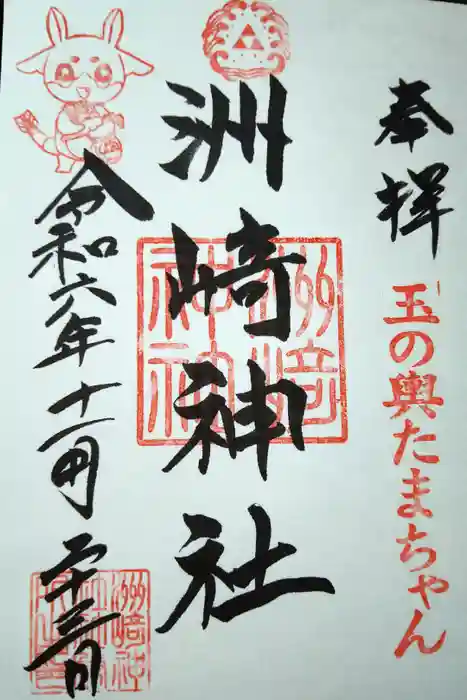 奉拝
玉の輿たまちゃん
洲崎神社
洲崎神社
令和六年十一月二十三日